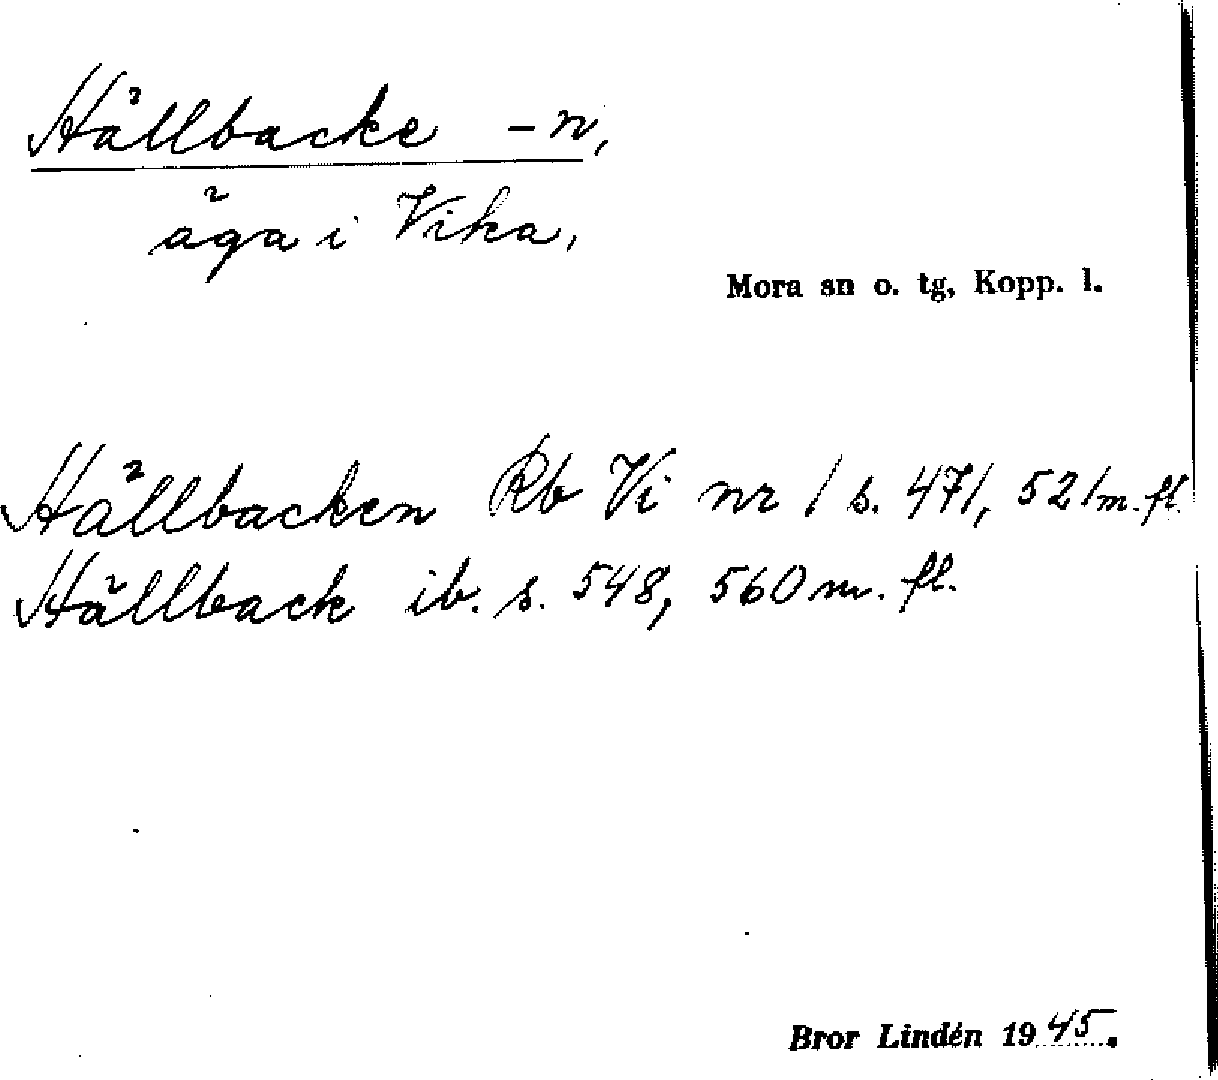 Hällbacke -n,
äga i Vika,
Mora sn o. tg, Kopp. l.
Hällbacken Rb Vi nr 1 s. 471, 521 m. fl.
Hällback ib. s. 548, 560 m. fl.
Bror Lindén 1945.